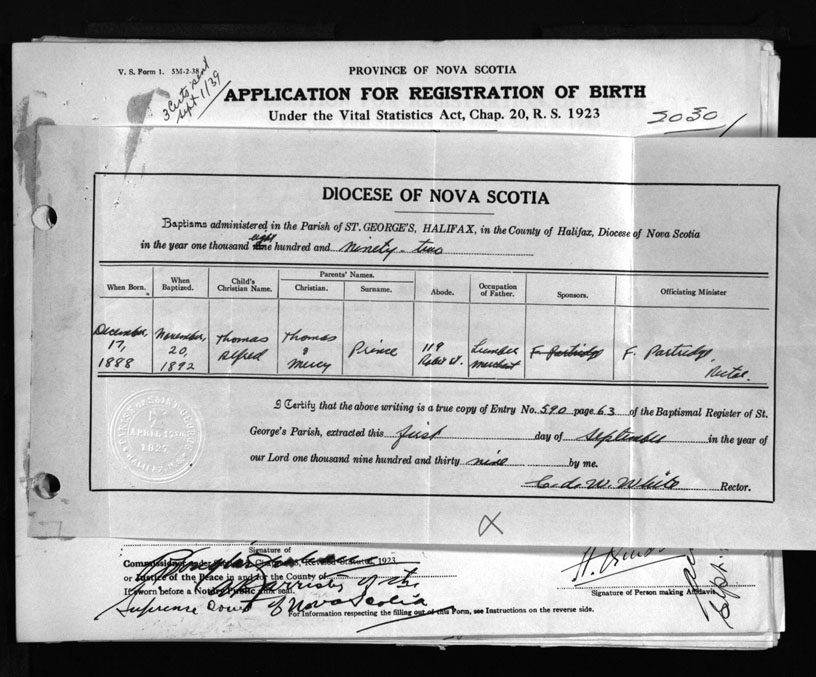 V. S. Form 1. 5M-2-38
3 Certs sent
Sept 1/39
PROVINCE OF NOVA SCOTIA
APPLICATION FOR REGISTRATION OF BIRTH
Under the Vital Statistics Act, Chap. 20, R. S. 1923
DIOCESE OF NOVA SCOTIA
Baptisms administered in the Parish of ST. GEORGE'S, HALIFAX, in the County of Halifax, Diocese of Nova Scotia
eight
in the year one thousand nine hundred and ninety-two
Parents' Names.
When Born. When Baptized. Child's Christian Name. Christian. Surname. Abode. Occupation of Father. Sponsors. Officiating Minister
December, November, Thomas Thomas 119 Lumber F. Partridge F. Partridge
17, 20, Alfred & Prince Merchant
1888 1892 Mercy Rector.
I Certify that the above writing is a true copy of Entry No. 590 page 63 of the Baptismal Register of St.
George's Parish, extracted this first day of September in the year of
our Lord one thousand nine hundred and thirty nine by me.
W. White Rector.
Signature of
1923
or Justice of the Peace in and for the County of
If sworn before a Notary Public affix seal.
Supreme Court of Nova Scotia
Signature of Person making Affidavit
For Information respecting the filling out of this Form, see Instructions on the reverse side.